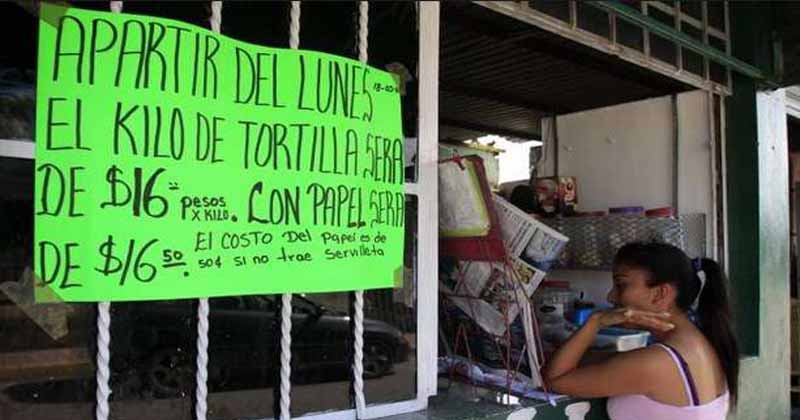 APARTIR DEL LUNES
EL KILO DE TORTILLA SERA
DE $16 pesos X KILO. CON PAPEL SERA
DE $16.50. EL COSTO DEL PAPEL ES DE
50¢ SI NO TRAE SERVILLETA